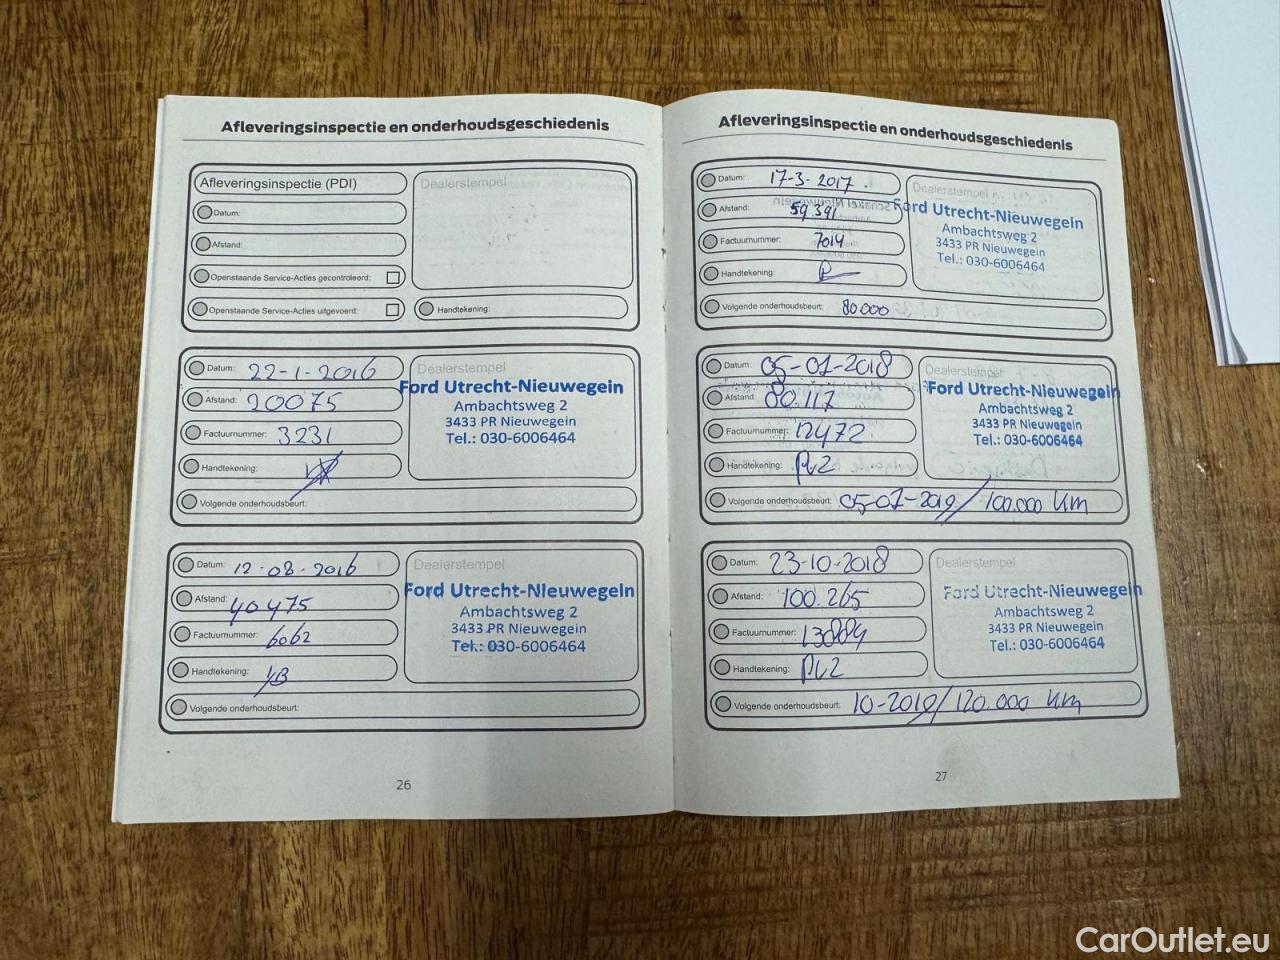 Afleveringsinspectie en onderhoudsgeschiedenis
Afleveringsinspectie (PDI)
Datum:
Afstand:
Openstaande Service-Acties gecontroleerd:
Openstaande Service-Acties uitgevoerd:
Dealerstempel
Handtekening:
Datum: 22-1-2016
Afstand: 20075
Factuurnummer: 3231
Handtekening:
Volgende onderhoudsbeurt:
Dealerstempel
Ford Utrecht-Nieuwegein
Ambachtsweg 2
3433 PR Nieuwegein
Tel.: 030-6006464
Datum: 12-08-2016
Afstand: 40475
Factuurnummer: 6062
Handtekening:
Volgende onderhoudsbeurt:
Dealerstempel
Ford Utrecht-Nieuwegein
Ambachtsweg 2
3433 PR Nieuwegein
Tel.: 030-6006464
26
Afleveringsinspectie en onderhoudsgeschiedenis
Datum: 17-3-2017.
Afstand: 59391
Factuurnummer: 7014
Handtekening:
Volgende onderhoudsbeurt: 80000
Dealerstempel
Ford Utrecht-Nieuwegein
Ambachtsweg 2
3433 PR Nieuwegein
Tel.: 030-6006464
Datum: 05-01-2018
Afstand: 80.117
Factuurnummer: 12472
Handtekening:
Volgende onderhoudsbeurt: 05-01-2019/100.000 km
Dealerstempel
Ford Utrecht-Nieuwegein
Ambachtsweg 2
3433 PR Nieuwegein
Tel.: 030-6006464
Datum: 23-10-2018
Afstand: 100.265
Factuurnummer: 13884
Handtekening:
Volgende onderhoudsbeurt: 10-2019/120.000 km
Dealerstempel
Ford Utrecht-Nieuwegein
Ambachtsweg 2
3433 PR Nieuwegein
Tel.: 030-6006464
27
CarOutlet.eu